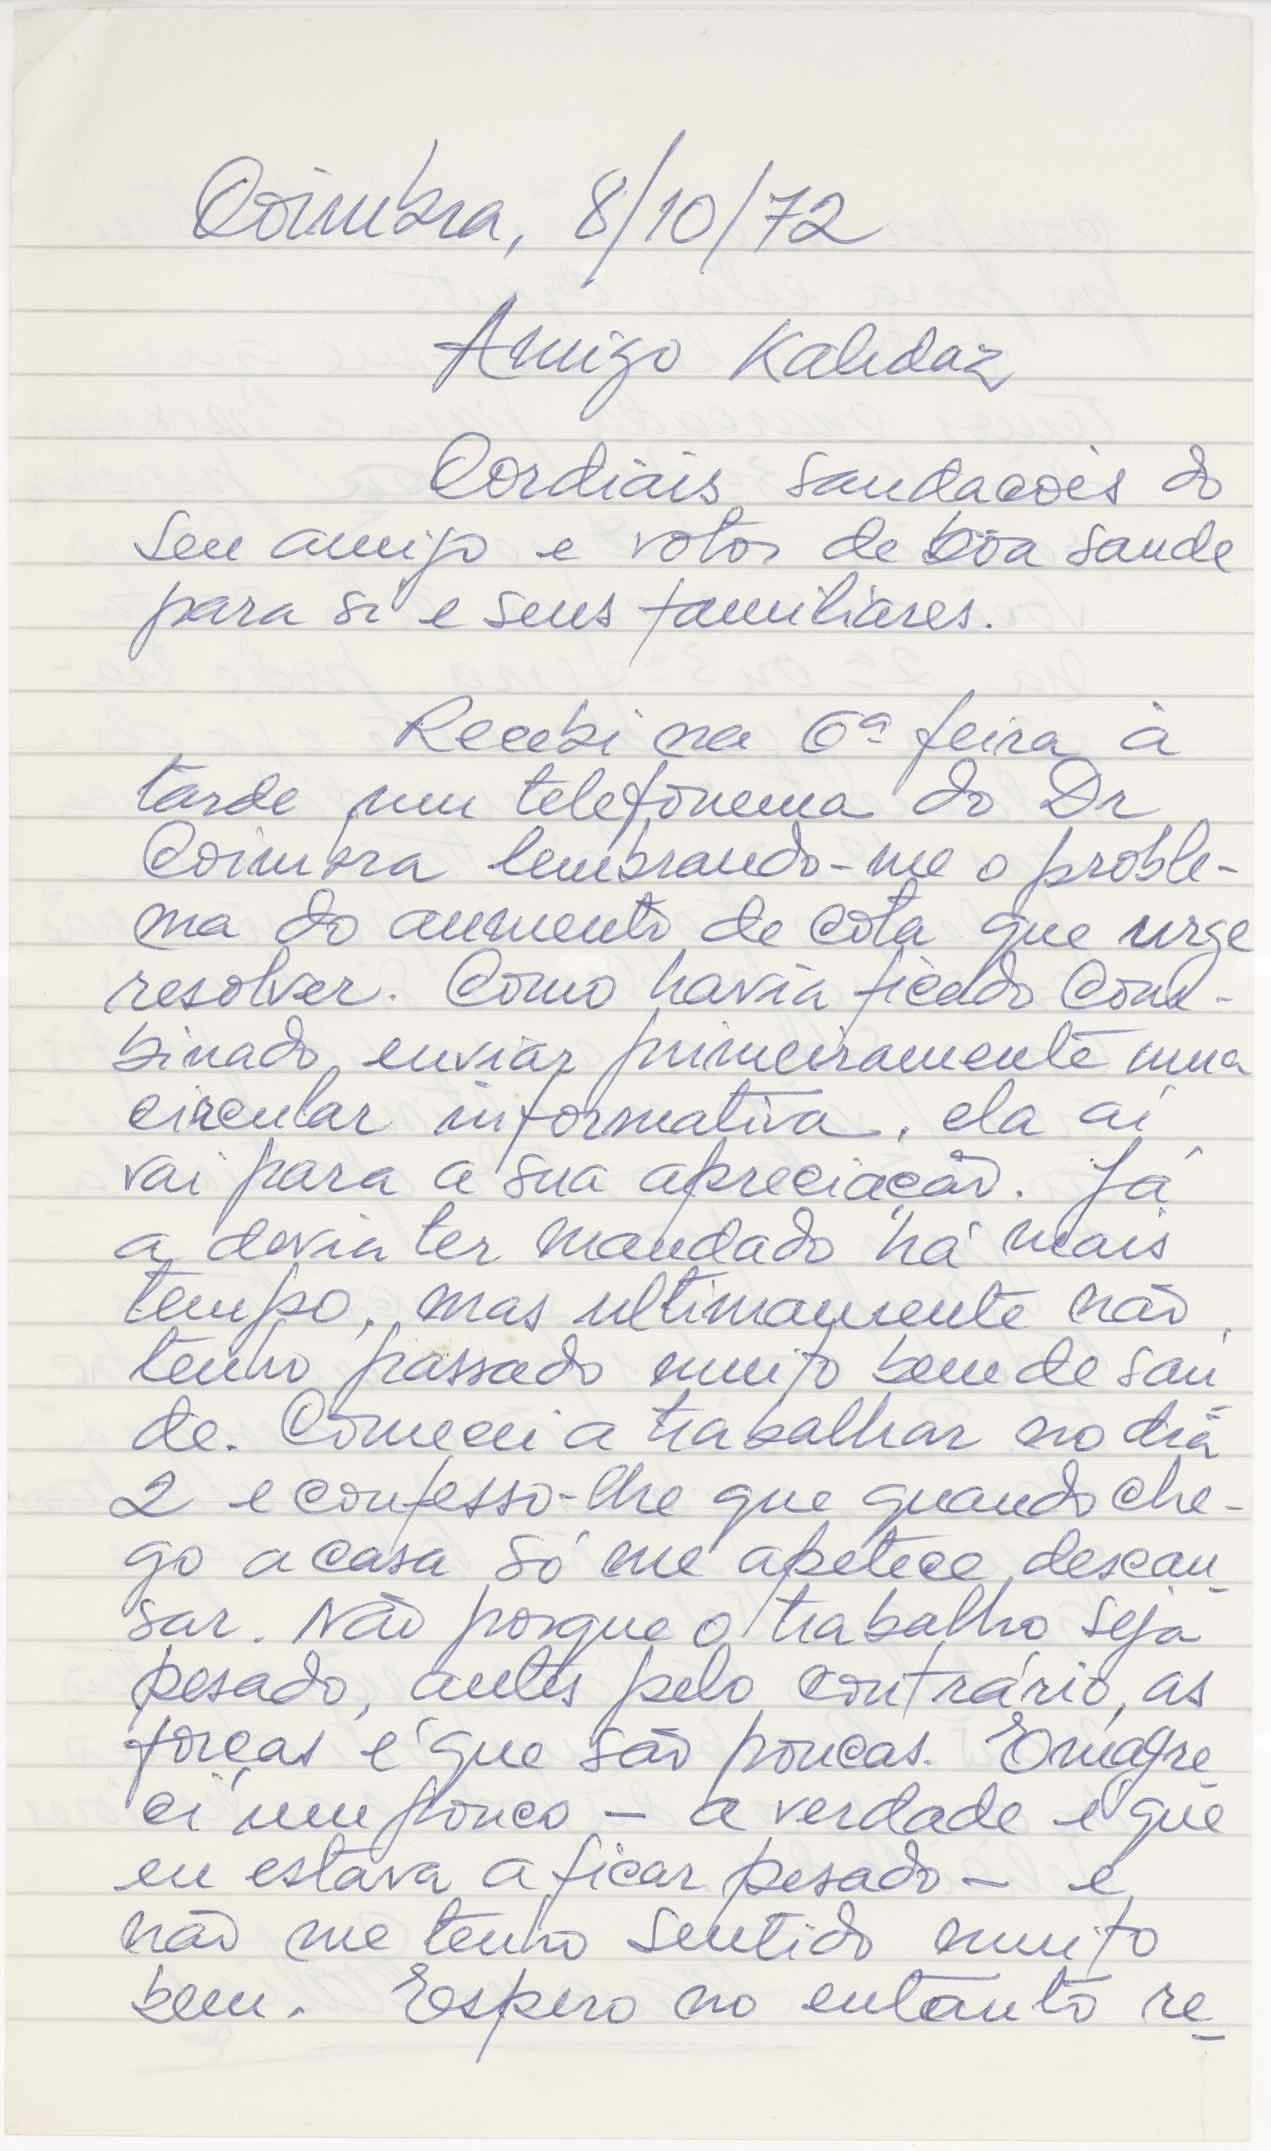 Coimbra, 8/10/72
Amigo Kalidaz
Cordiais saudacois do
seu amigo e votos de bôa saude
para si e seus familiares.
Recebi na 6ª feira à
tarde um telefonema do Dr
Coimbra lembrando-me o proble-
ma do aumento de cota que urge
resolver. Como havia ficado com-
binado enviar primeiramente uma
circular informativa, ela aí
vai para a sua apreciação. Já
a devia ter mandado há mais
tempo, mas ultimamente não
tenho passado muito bem de saú
de. Comecei a trabalhar no dia
2 e confesso-lhe que quando che-
go a casa só me apetece descan-
sar. Não porque o trabalho seja
pesado, antes pelo contrário, as
forças é que são poucas. Emagre
ci um pouco - a verdade é que
eu estava a ficar pesado - e
não me tenho sentido muito
bem. Espero no entanto re-